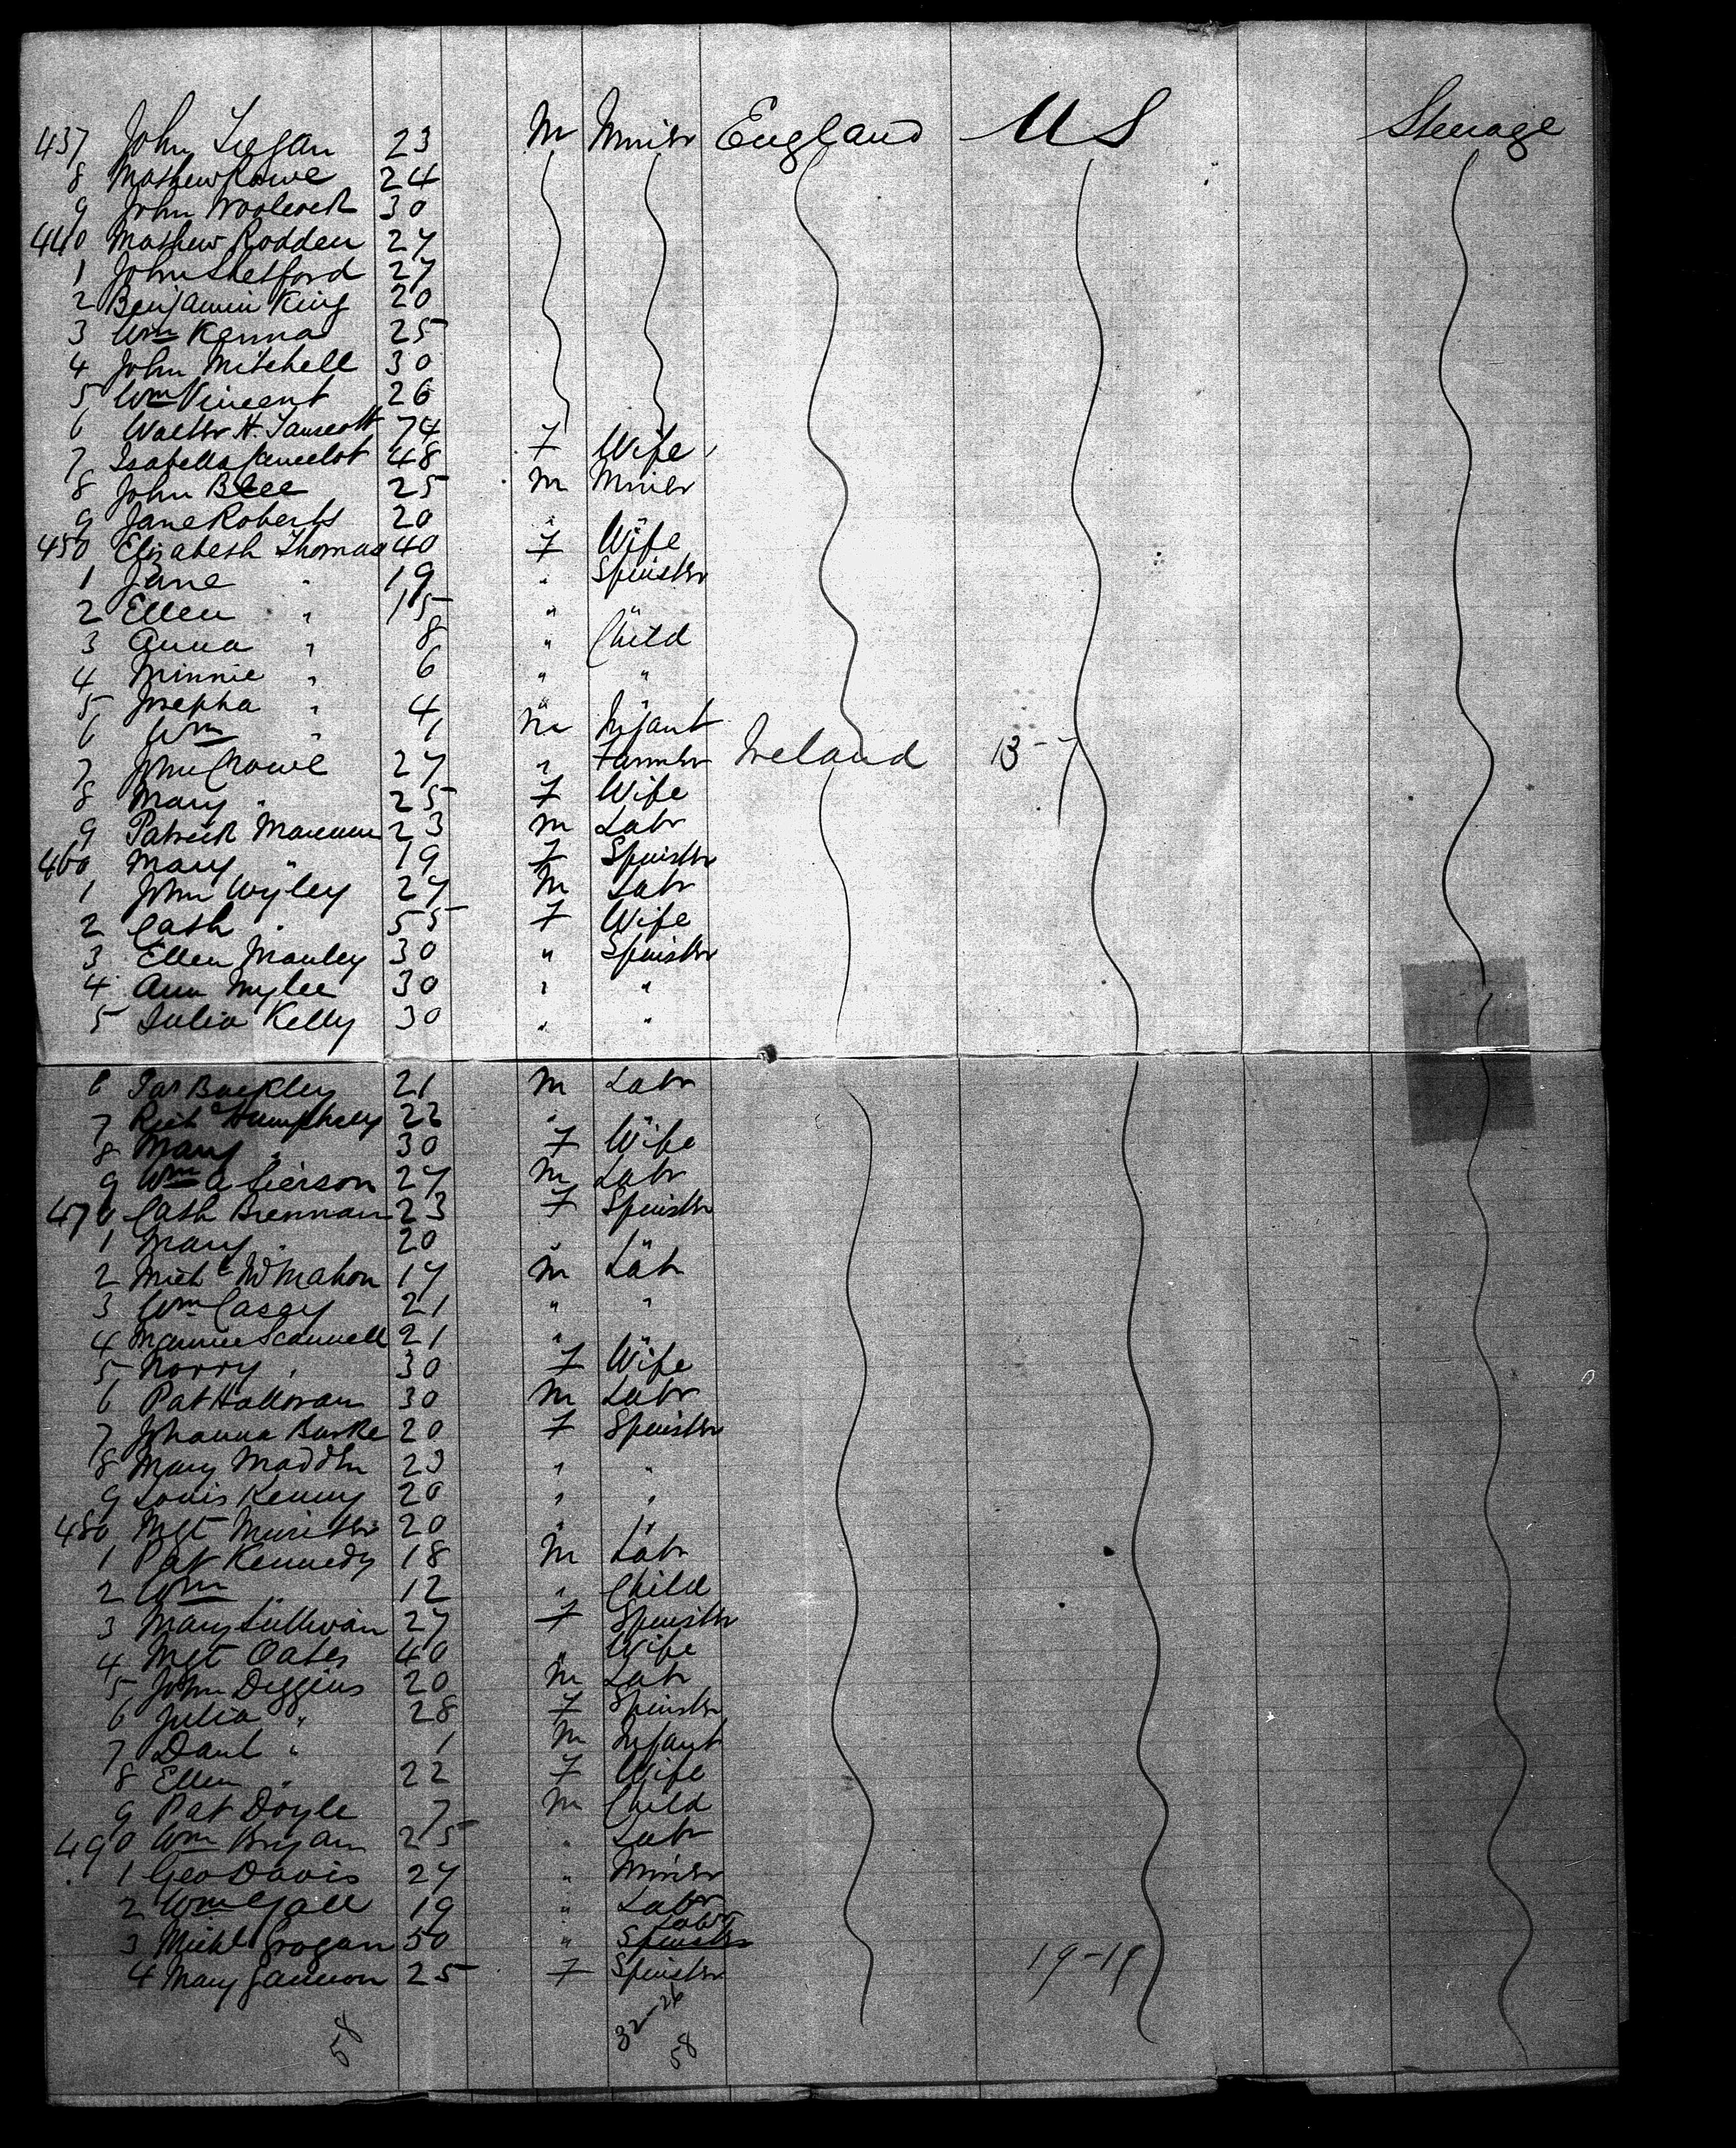 437 John Tregan 23 M Miner England US Steerage
8 Mathew Rowe 24
9 John Woolcock 30
440 Mathew Rodden 27
1 John Shetford 27
2 Benjamin King 20
3 Wm Kenna 25
4 John Mitchell 30
5 Wm Vincent 26
6 Walter H. 74
7 Isabella 48 F Wife
8 John Blee 25 M Miner
9 Jane Roberts 20 " "
450 Elizabeth Thomas 40 F Wife
1 Jane " 19 " Spinster
2 Ellen " 15 " "
3 Anna " 8 " Child
4 Minnie " 6 " "
5 Josepha " 4 " "
6 Wm " 1 M Infant
7 John Crowe 27 " Farmer Ireland 13-7
8 Mary " 25 F Wife
9 Patrick 23 M Labr
460 Mary " 19 F Spinster
1 John Wyley 27 M Labr
2 Cath " 55 F Wife
3 Ellen Manley 30 " Spinster
4 Ann 30 " "
5 Julia Kelly 30 " "
6 Jas Buckley 21 M Labr
7 Richd Humphrey 22 " "
8 Mary " 30 F Wife
9 Wm A 27 M Labr
470 Cath Brennan 23 F Spinster
1 Mary " 20 " "
2 Michl McMahon 17 M Labr
3 Wm Casey 21 " "
4 Scannell 21 " "
5 Norry " 30 F Wife
6 Pat Halloran 30 M Labr
7 Johanna Burke 20 F Spinster
8 Mary Madden 23 " "
9 Louis Kenny 20 " "
480 Mgt 20 " "
1 Pat Kennedy 18 M Labr
2 Wm " 12 " Child
3 Mary Sullivan 27 F Spinster
4 Mgt Oates 40 " Wife
5 John Diggins 20 M Labr
6 Julia " 28 F Spinster
7 Danl " 1 M Infant
8 Ellen " 22 F Wife
9 Pat Doyle 7 M Child
490 Wm Bryan 25 " Labr
1 Geo Davis 27 " Miner
2 Wm Gall 19 " Labr
Labr
3 Michl Grogan 50 " Spinster 19-19
4 Mary Gannon 25 F Spinster
58 32-26
58